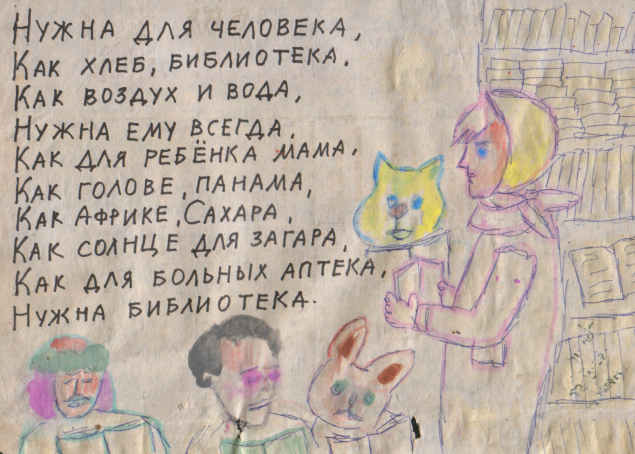 Нужна для человека,
Как хлеб, библиотека,
Как воздух и вода,
Нужна ему всегда,
Как для ребёнка мама,
Как голове, панама,
Как Африке, Сахара,
Как солнце для загара,
Как для больных аптека,
Нужна библиотека.